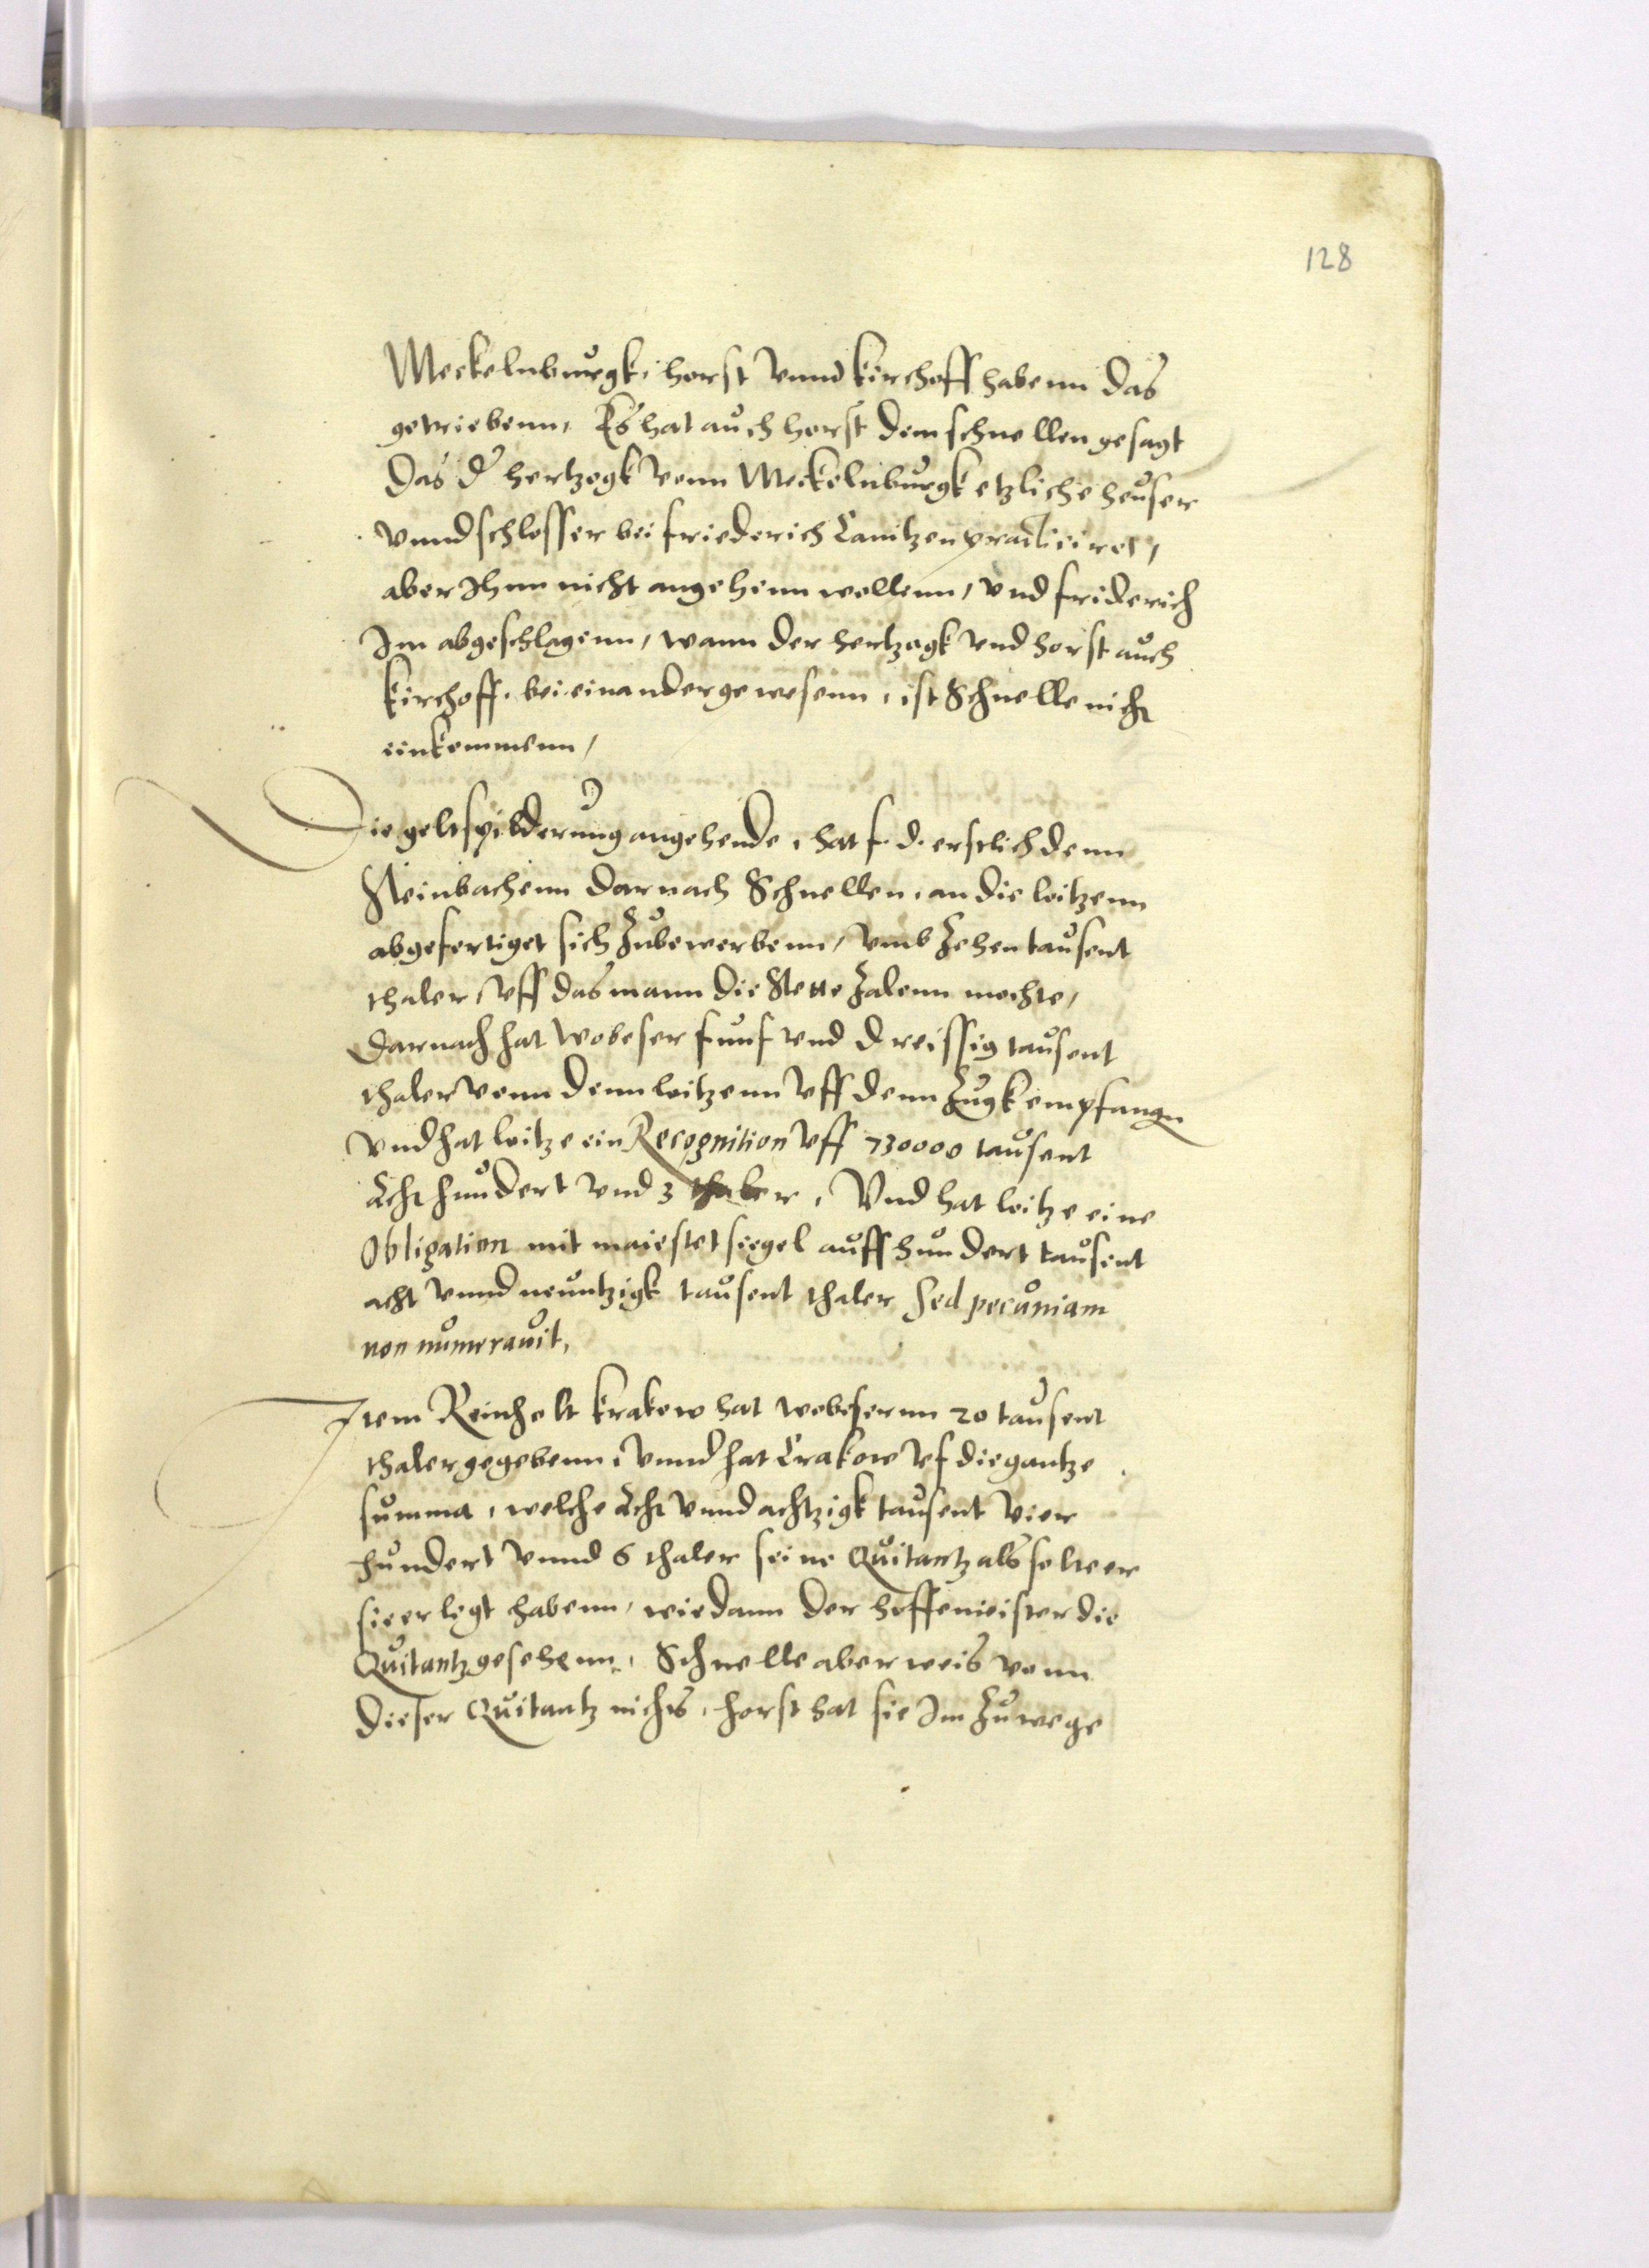 128
Meckelnburgk, horst vnnd kirchoff habenn das
getriebenn, Es hat auch horst dem schnellen gesagt
Das d hertzogk vonn Meckelnburgk etzliche heuser
vnnd schlosser bei friederich Canitzen practiciret,
aber Ihnn nicht angehenn wollenn, vnd friderich
Im abgeschlagenn, wann der hertzogk vnd horst auch
kirchoff bei einander gewesenn, ist Schnelle nicht
einkommenn,
Die geltspilderung angehende, hat f. d. erstlich denn
Steinbachenn darnach Schnellen, an die loitzenn
abgefertiget sich zubewerbenn, vmb zehen tausent
thaler, vff das mann die Stette zalenn mochte,
Darnach hat wobeser funf vnd dreissig tausent
thaler vonn denn loitzenn vff denn zugk empfangn
vnd hat loitze ein Recognition vff 730000 tausent
Acht hundert vnd 3 thaler, Vnd hat loitze eine
Obligation mit maiestet siegel auff hundert tausent
acht vnnd neuntzigk tausent thaler Sed pecuniam
non numerauit,
Item Reinholt krakow hat wobesernn 20 tausent
thaler gegebenn, vnnd hat Crakow vf die gantze
summa, welche Acht vnnd achtzigk tausent vier
hundert vnnd 6 thaler seine Quitantz als solte er
sie erlegt habenn, wie dann der hoffemeister die
Quitantz gesehenn, Schnelle aber weis vonn
dieser Quitantz nichts, horst hat sie Im zuwege